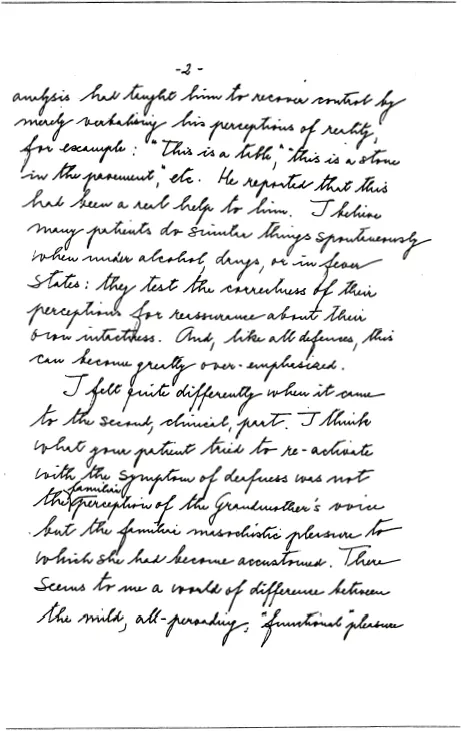 -2-
analysis had taught him to recover control by
merely verbalising his perceptions of reality,
for example: "This is a table," "this is a stone
in the pavement," etc. He reported that this
had been a real help to him. I believe
many patients do similar things spontaneously
when under alcohol, drugs, or in fever
states: they test the correctness of their
perceptions for reassurance about their
own intactness. And, like all defenses, this
can become greatly over-emphasized.
I felt quite differently when it came
to the second, clinical, part. I think
what your patient tried to re-activate
with the symptom of deafness was not
familiar
the perception of the Grandmother's voice
but the familiar masochistic pleasure to
which she had become accustomed. There
seems to me a world of difference between
the mild, all-pervading, "functional" pleasure